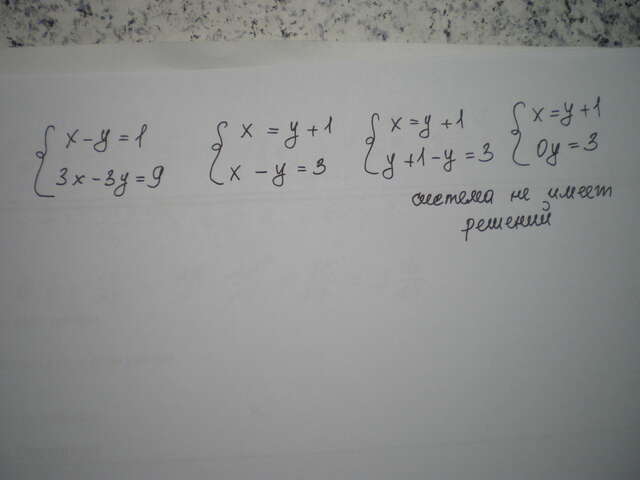 x - y = 1
3x - 3y = 9
x = y + 1
x - y = 3
x = y + 1
y + 1 - y = 3
x = y + 1
0y = 3
система не имеет
решений